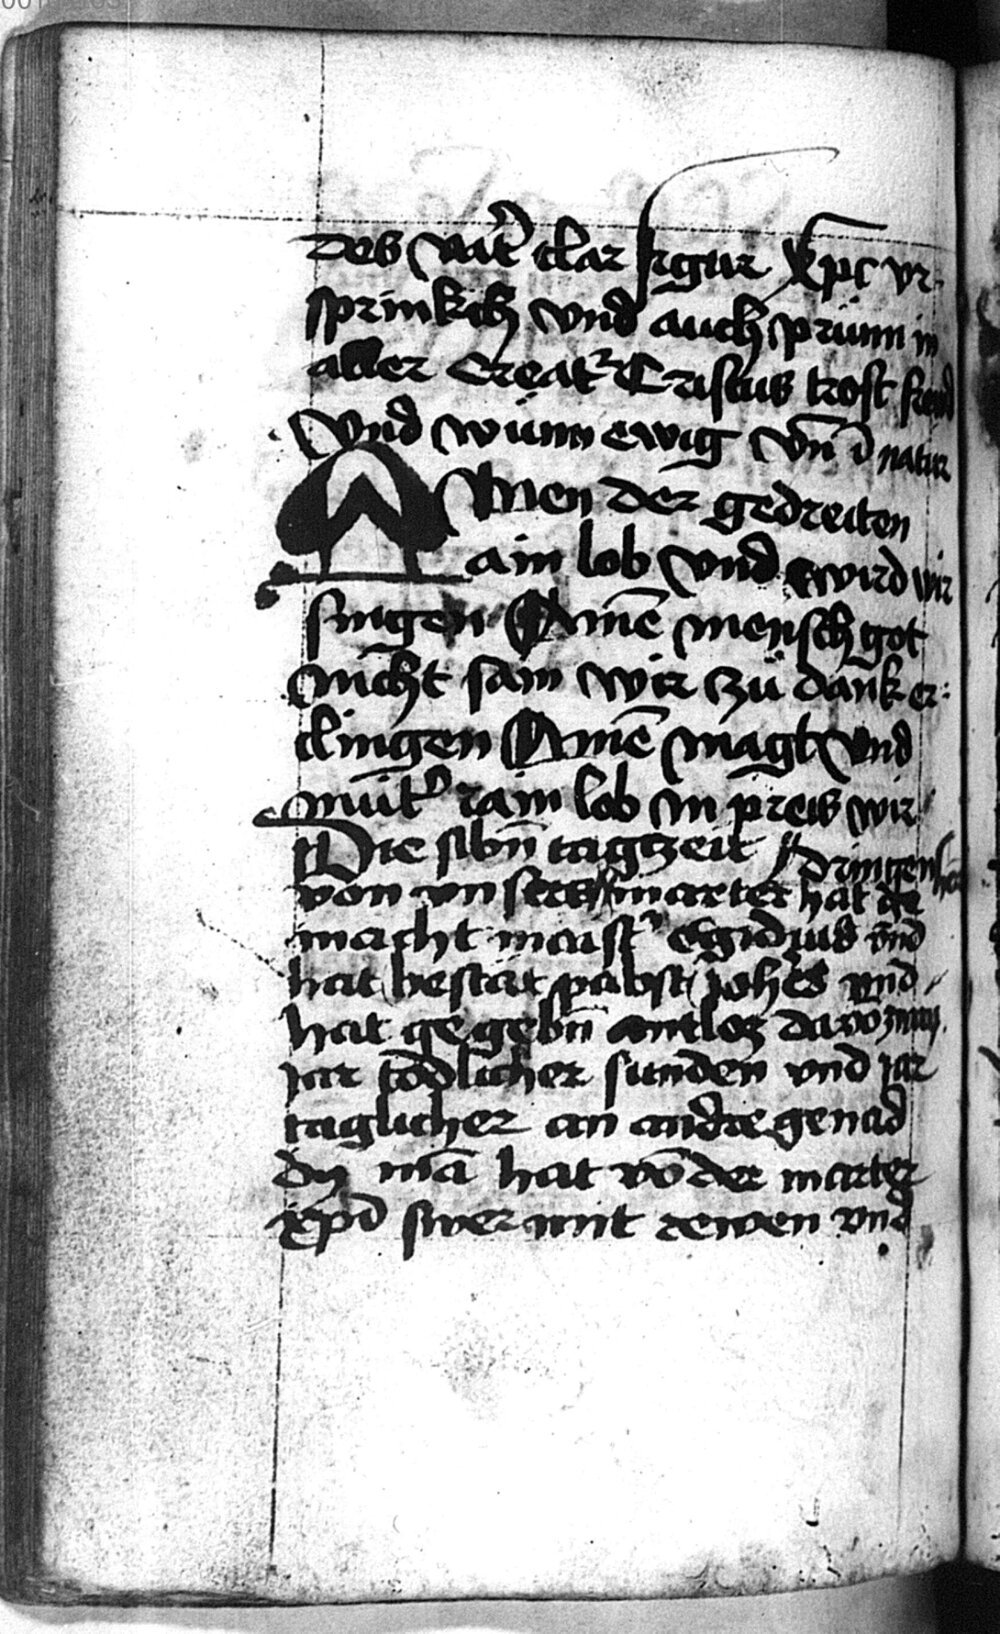 des vat͛ clar figur Xp̄c vr-
sprinklich vnd auch sprünn in
aller Creat͛ Cristus trost frewd
Vnd wünn ewig vn̄ ī natur
AMen der gedreiten
ain lob vnd ewird wir
singen Amē mensch got
nicht sam wir zü dank er-
clingen Amē magt vnd
mūt͛ rain lob vn preis wir
Die sibn̄ tagzeit // dringen
von vnsers marter hat ge
macht maist͛ Egidius vn̄d
hat bestät pabst Joh̄es vnd
hat gegebn̄ antloz darvō
jar todlicher sunden vnd jar
taglicher an andre genad
dy mā hat vō der marter
xp̄i swer mit rewen vnd